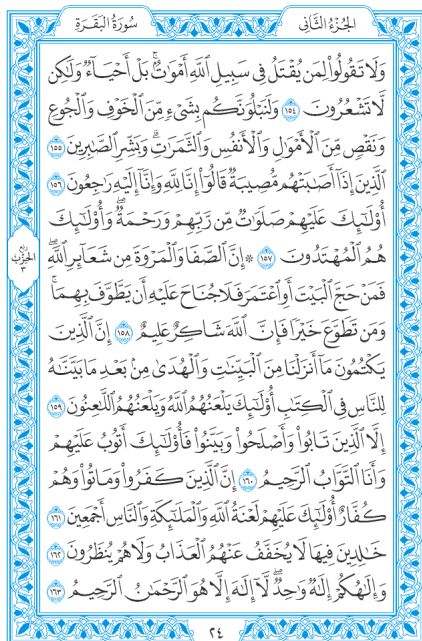 الجُزْءُ الثَّانِي
سُورَةُ البَقَرَةِ
وَلَا تَقُولُوا۟ لِمَن يُقْتَلُ فِى سَبِيلِ ٱللَّهِ أَمْوَٰتٌۢ ۚ بَلْ أَحْيَآءٌ وَلَٰكِن
لَّا تَشْعُرُونَ ١٥٤ وَلَنَبْلُوَنَّكُم بِشَىْءٍ مِّنَ ٱلْخَوْفِ وَٱلْجُوعِ
وَنَقْصٍ مِّنَ ٱلْأَمْوَٰلِ وَٱلْأَنفُسِ وَٱلثَّمَرَٰتِ ۗ وَبَشِّرِ ٱلصَّٰبِرِينَ ١٥٥
ٱلَّذِينَ إِذَآ أَصَٰبَتْهُم مُّصِيبَةٌ قَالُوٓا۟ إِنَّا لِلَّهِ وَإِنَّآ إِلَيْهِ رَٰجِعُونَ ١٥٦
أُو۟لَٰٓئِكَ عَلَيْهِمْ صَلَوَٰتٌ مِّن رَّبِّهِمْ وَرَحْمَةٌ ۖ وَأُو۟لَٰٓئِكَ
هُمُ ٱلْمُهْتَدُونَ ١٥٧ ۞ إِنَّ ٱلصَّفَا وَٱلْمَرْوَةَ مِن شَعَآئِرِ ٱللَّهِ ۖ
فَمَنْ حَجَّ ٱلْبَيْتَ أَوِ ٱعْتَمَرَ فَلَا جُنَاحَ عَلَيْهِ أَن يَطَّوَّفَ بِهِمَا ۚ
وَمَن تَطَوَّعَ خَيْرًا فَإِنَّ ٱللَّهَ شَاكِرٌ عَلِيمٌ ١٥٨ إِنَّ ٱلَّذِينَ
يَكْتُمُونَ مَآ أَنزَلْنَا مِنَ ٱلْبَيِّنَٰتِ وَٱلْهُدَىٰ مِنۢ بَعْدِ مَا بَيَّنَّٰهُ
لِلنَّاسِ فِى ٱلْكِتَٰبِ ۙ أُو۟لَٰٓئِكَ يَلْعَنُهُمُ ٱللَّهُ وَيَلْعَنُهُمُ ٱللَّٰعِنُونَ ١٥٩
إِلَّا ٱلَّذِينَ تَابُوا۟ وَأَصْلَحُوا۟ وَبَيَّنُوا۟ فَأُو۟لَٰٓئِكَ أَتُوبُ عَلَيْهِمْ ۚ
وَأَنَا ٱلتَّوَّابُ ٱلرَّحِيمُ ١٦٠ إِنَّ ٱلَّذِينَ كَفَرُوا۟ وَمَاتُوا۟ وَهُمْ
كُفَّارٌ أُو۟لَٰٓئِكَ عَلَيْهِمْ لَعْنَةُ ٱللَّهِ وَٱلْمَلَٰٓئِكَةِ وَٱلنَّاسِ أَجْمَعِينَ ١٦١
خَٰلِدِينَ فِيهَا ۖ لَا يُخَفَّفُ عَنْهُمُ ٱلْعَذَابُ وَلَا هُمْ يُنظَرُونَ ١٦٢
وَإِلَٰهُكُمْ إِلَٰهٌ وَٰحِدٌ ۖ لَّآ إِلَٰهَ إِلَّا هُوَ ٱلرَّحْمَٰنُ ٱلرَّحِيمُ ١٦٣
رُبْع
الحِزْب
٣
٢٤